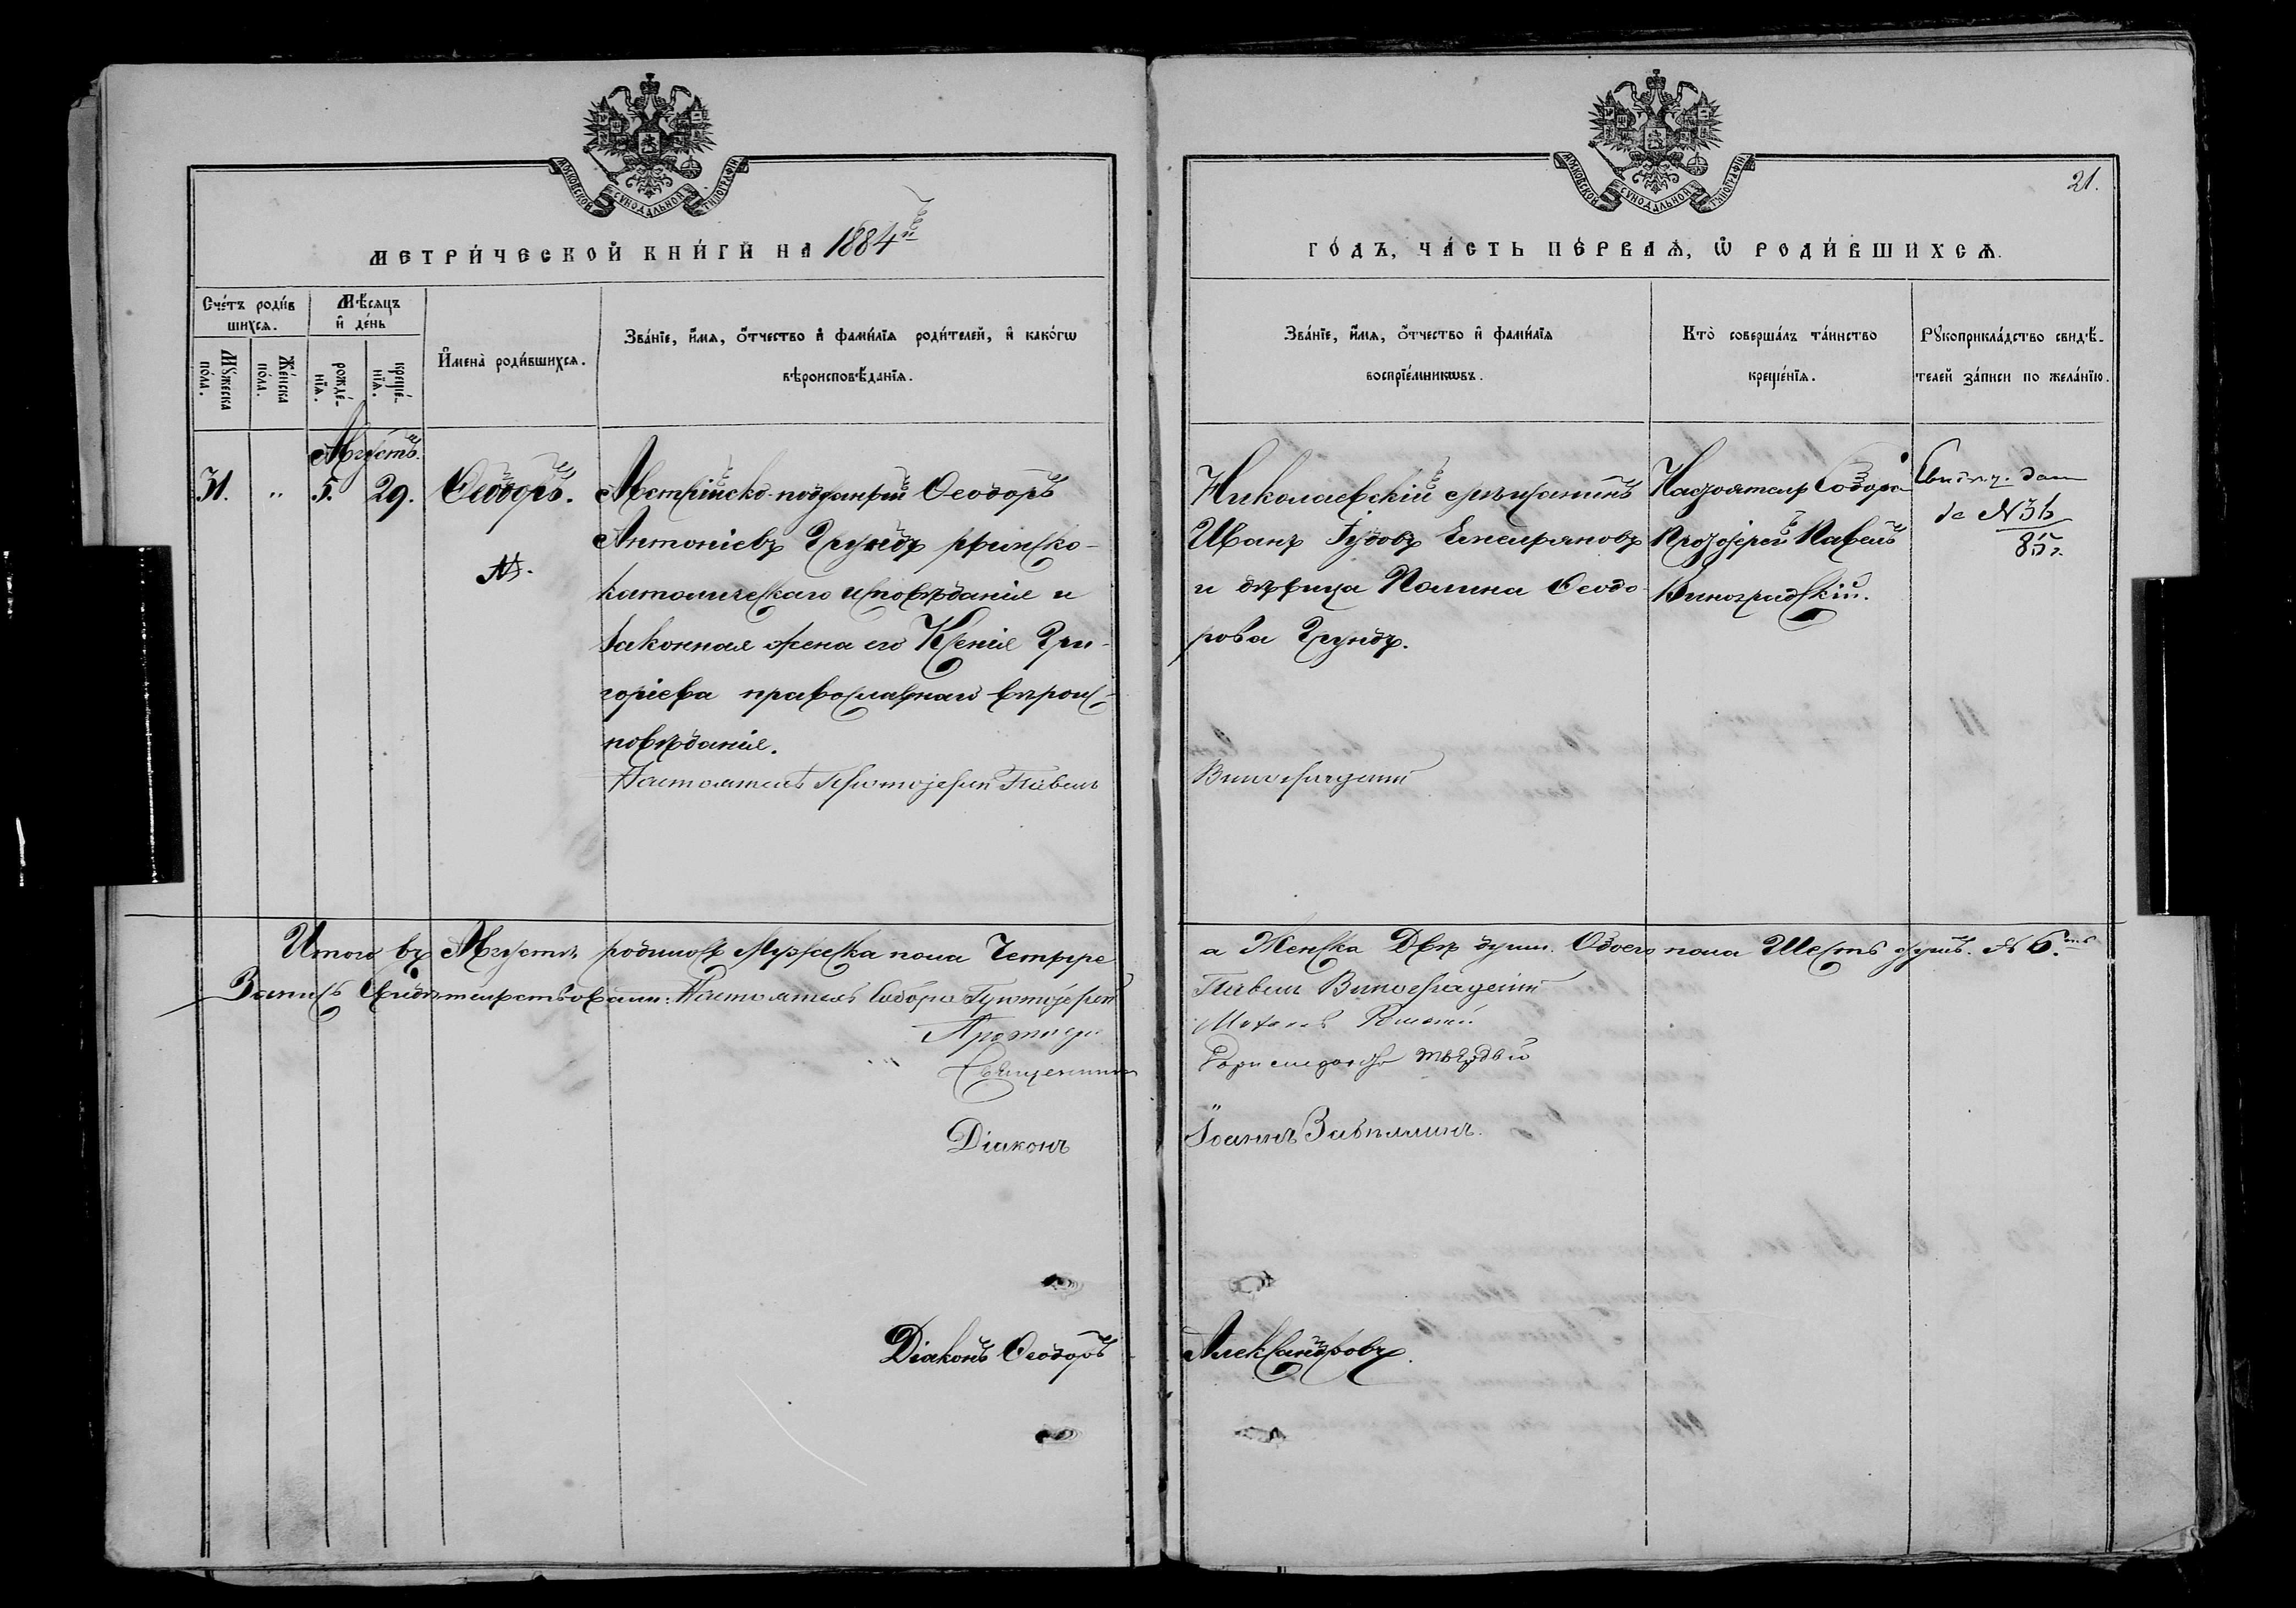 МОСКОВСКОЙ СѴНОДАЛЬНОЙ ТИПОГРАФІИ
МЕТРИ́ЧЕСКОЙ КНИ́ГИ НА 1884й
Сче́тъ роди́в
шихсѧ.
Мѣ́сѧцъ
и҆ де́нь
Мꙋ́жеска
по́ла.
Же́нска
по́ла.
рожде́-
нїѧ.
креще́-
нїѧ.
И҆мена̀ роди́вшихсѧ.
Зва́нїе, и҆́мѧ, ѻ҆́тчество и҆ фами́лїѧ роди́телей, и҆ како́гѡ
вѣроисповѣ́данїѧ.
Августъ.
31. „ 5. 29. Ѳеодоръ.
Австрійско-подданный Ѳеодоръ
Антоніевъ Грундъ римско-
католическаго исповѣданія и
законная жена его Ксенія Гри-
горіева православнаго вѣроис-
повѣданія.
Настоятель Протоіерей Павелъ
Итого въ Августѣ родилось Мужеска пола Четыре
Запись свидѣтельствовали: Настоятель Собора Протоіерей
Священникъ
Діаконъ
Діаконъ Ѳеодоръ
МОСКОВСКОЙ СѴНОДАЛЬНОЙ ТИПОГРАФІИ
21.
ГО́ДЪ, ЧА́СТЬ ПЕ́РВАѦ, Ѡ҆ РОДИ́ВШИХСѦ.
Зва́нїе, и҆́мѧ, ѻ҆́тчество и҆ фами́лїѧ
воспрїе́мникѡвъ.
Кто̀ соверша́лъ та́инство
креще́нїѧ.
Рꙋкоприкла́дство свидѣ́-
телей за́писи по жела́нїю.
Николаевскій мѣщанинъ
Иванъ Іудовъ Емельяновъ
и дѣвица Полина Ѳеодо-
рова Грундъ.
Виноградскій
Настоятель Собора
Протоіерей Павелъ
Виноградскій.
Свидѣт. дан
за №36
85 г.
а Женска Двѣ души. Обоего пола Шесть душъ. № 6.
Павелъ Виноградскій
Іоаннъ Завьялинъ.
Александровъ.